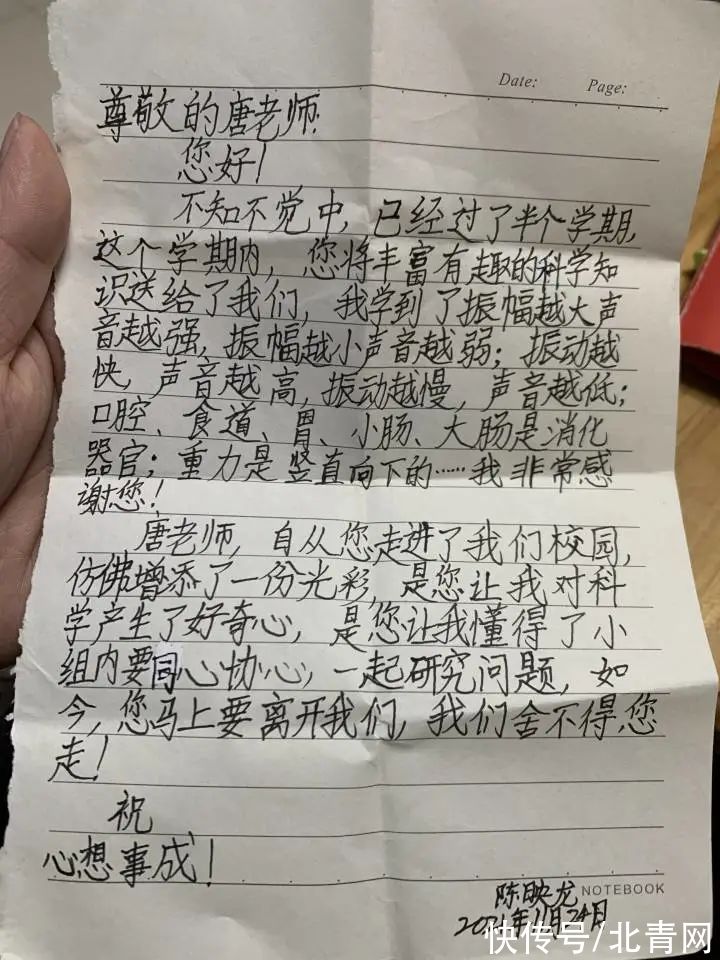 Date: Page:
尊敬的唐老师:
您好!
不知不觉中,已经过了半个学期,
这个学期内,您将丰富有趣的科学知
识送给了我们,我学到了振幅越大声
音越强,振幅越小声音越弱;振动越
快,声音越高,振动越慢,声音越低;
口腔、食道、胃、小肠、大肠是消化
器官;重力是竖直向下的……我非常感
谢您!
唐老师,自从您走进了我们校园,
仿佛增添了一份光彩,是您让我对科
学产生了好奇心,是您让我懂得了小
组内要同心协心,一起研究问题,如
今,您马上要离开我们,我们舍不得您
走!
祝
心想事成!
陈映龙
NOTEBOOK
2021年11月24日
快传号/北青网